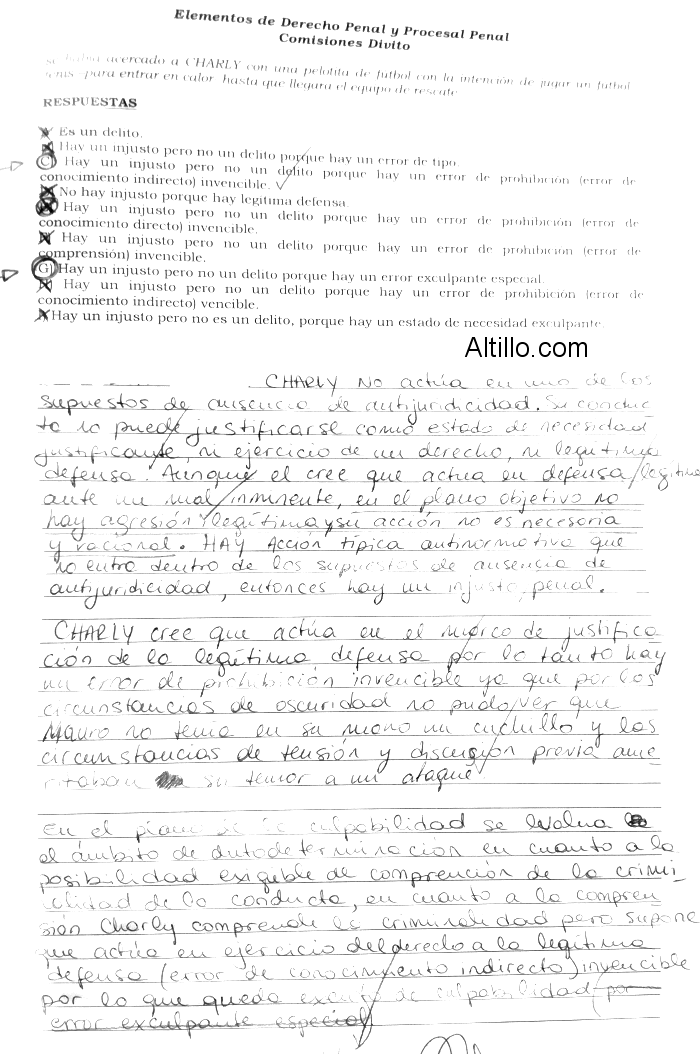 Elementos de Derecho Penal y Procesal Penal
Comisiones Divito
se había acercado a CHARLY con una pelotita de futbol con la intención de jugar un futbol
tenis para entrar en calor hasta que llegara el equipo de rescate
RESPUESTAS
Es un delito.
Hay un injusto pero no un delito porque hay un error de tipo.
C) Hay un injusto pero no un delito porque hay un error de prohibición (error de
conocimiento indirecto) invencible.
No hay injusto porque hay legitima defensa.
Hay un injusto pero no un delito porque hay un error de prohibición (error de
conocimiento directo) invencible.
Hay un injusto pero no un delito porque hay un error de prohibición (error de
comprensión) invencible.
G) Hay un injusto pero no un delito porque hay un error exculpante especial.
Hay un injusto pero no un delito porque hay un error de prohibición (error de
conocimiento indirecto) vencible.
Hay un injusto pero no es un delito, porque hay un estado de necesidad exculpante.
Altillo.com
CHARLY No actúa en uno de los
supuestos de ausencia de antijuridicidad. Su conduc
ta no puede justificarse como estado de necesidad
justificante, ni ejercicio de un derecho, ni legítima
defensa. Aunque el cree que actua en defensa legítima
ante un mal inminente, en el plano objetivo no
hay agresión ilegítima y su acción no es necesaria
y racional. HAY Acción típica antinormativa que
no entra dentro de los supuestos de ausencia de
antijuridicidad, entonces hay un injusto penal.
CHARLY cree que actúa en el marco de justifica
ción de la legítima defensa por lo tanto hay
un error de prohibición invencible ya que por las
circunstancias de oscuridad no pudo ver que
Mauro no tenia en su mano un cuchillo y las
circumstancias de tensión y discusión previa ame
ritaban su temor a un ataque.
En el plano de la culpabilidad se evalua
el ámbito de autodeterminación en cuanto a la
posibilidad exigible de comprención de la crimi
nalidad de la conducta, en cuanto a la compren
sión Charly comprende la criminalidad pero supone
que actúa en ejercicio del derecho a la legítima
defensa (error de conocimiento indirecto) invencible
por lo que queda exento de culpabilidad por
error exculpante especial